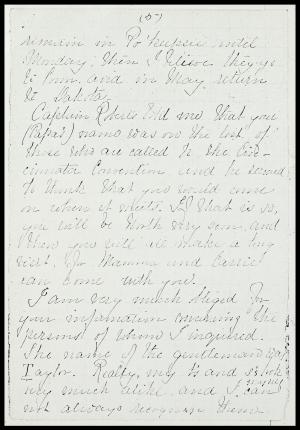 (5)
remain in Po'keepsie until
Monday; then I believe they go
to Penn. and in May return
to Dakota.
Captain Roberts told me that your
(Papa's) name was on the list of
those who are called to the Cin-
cinnati Convention, and he seemed
to think that you would come
on when it meets. If that is so,
you will be North very soon, and
then you will all make a long
visit, for Mamma and Carrie
can come with you.
I am very much obliged for
your information concerning the
persons of whom I inquired.
The name of the gentleman was
Taylor. Really, my Ts and Ss look
very much alike, and I myself can
not always recognize them.